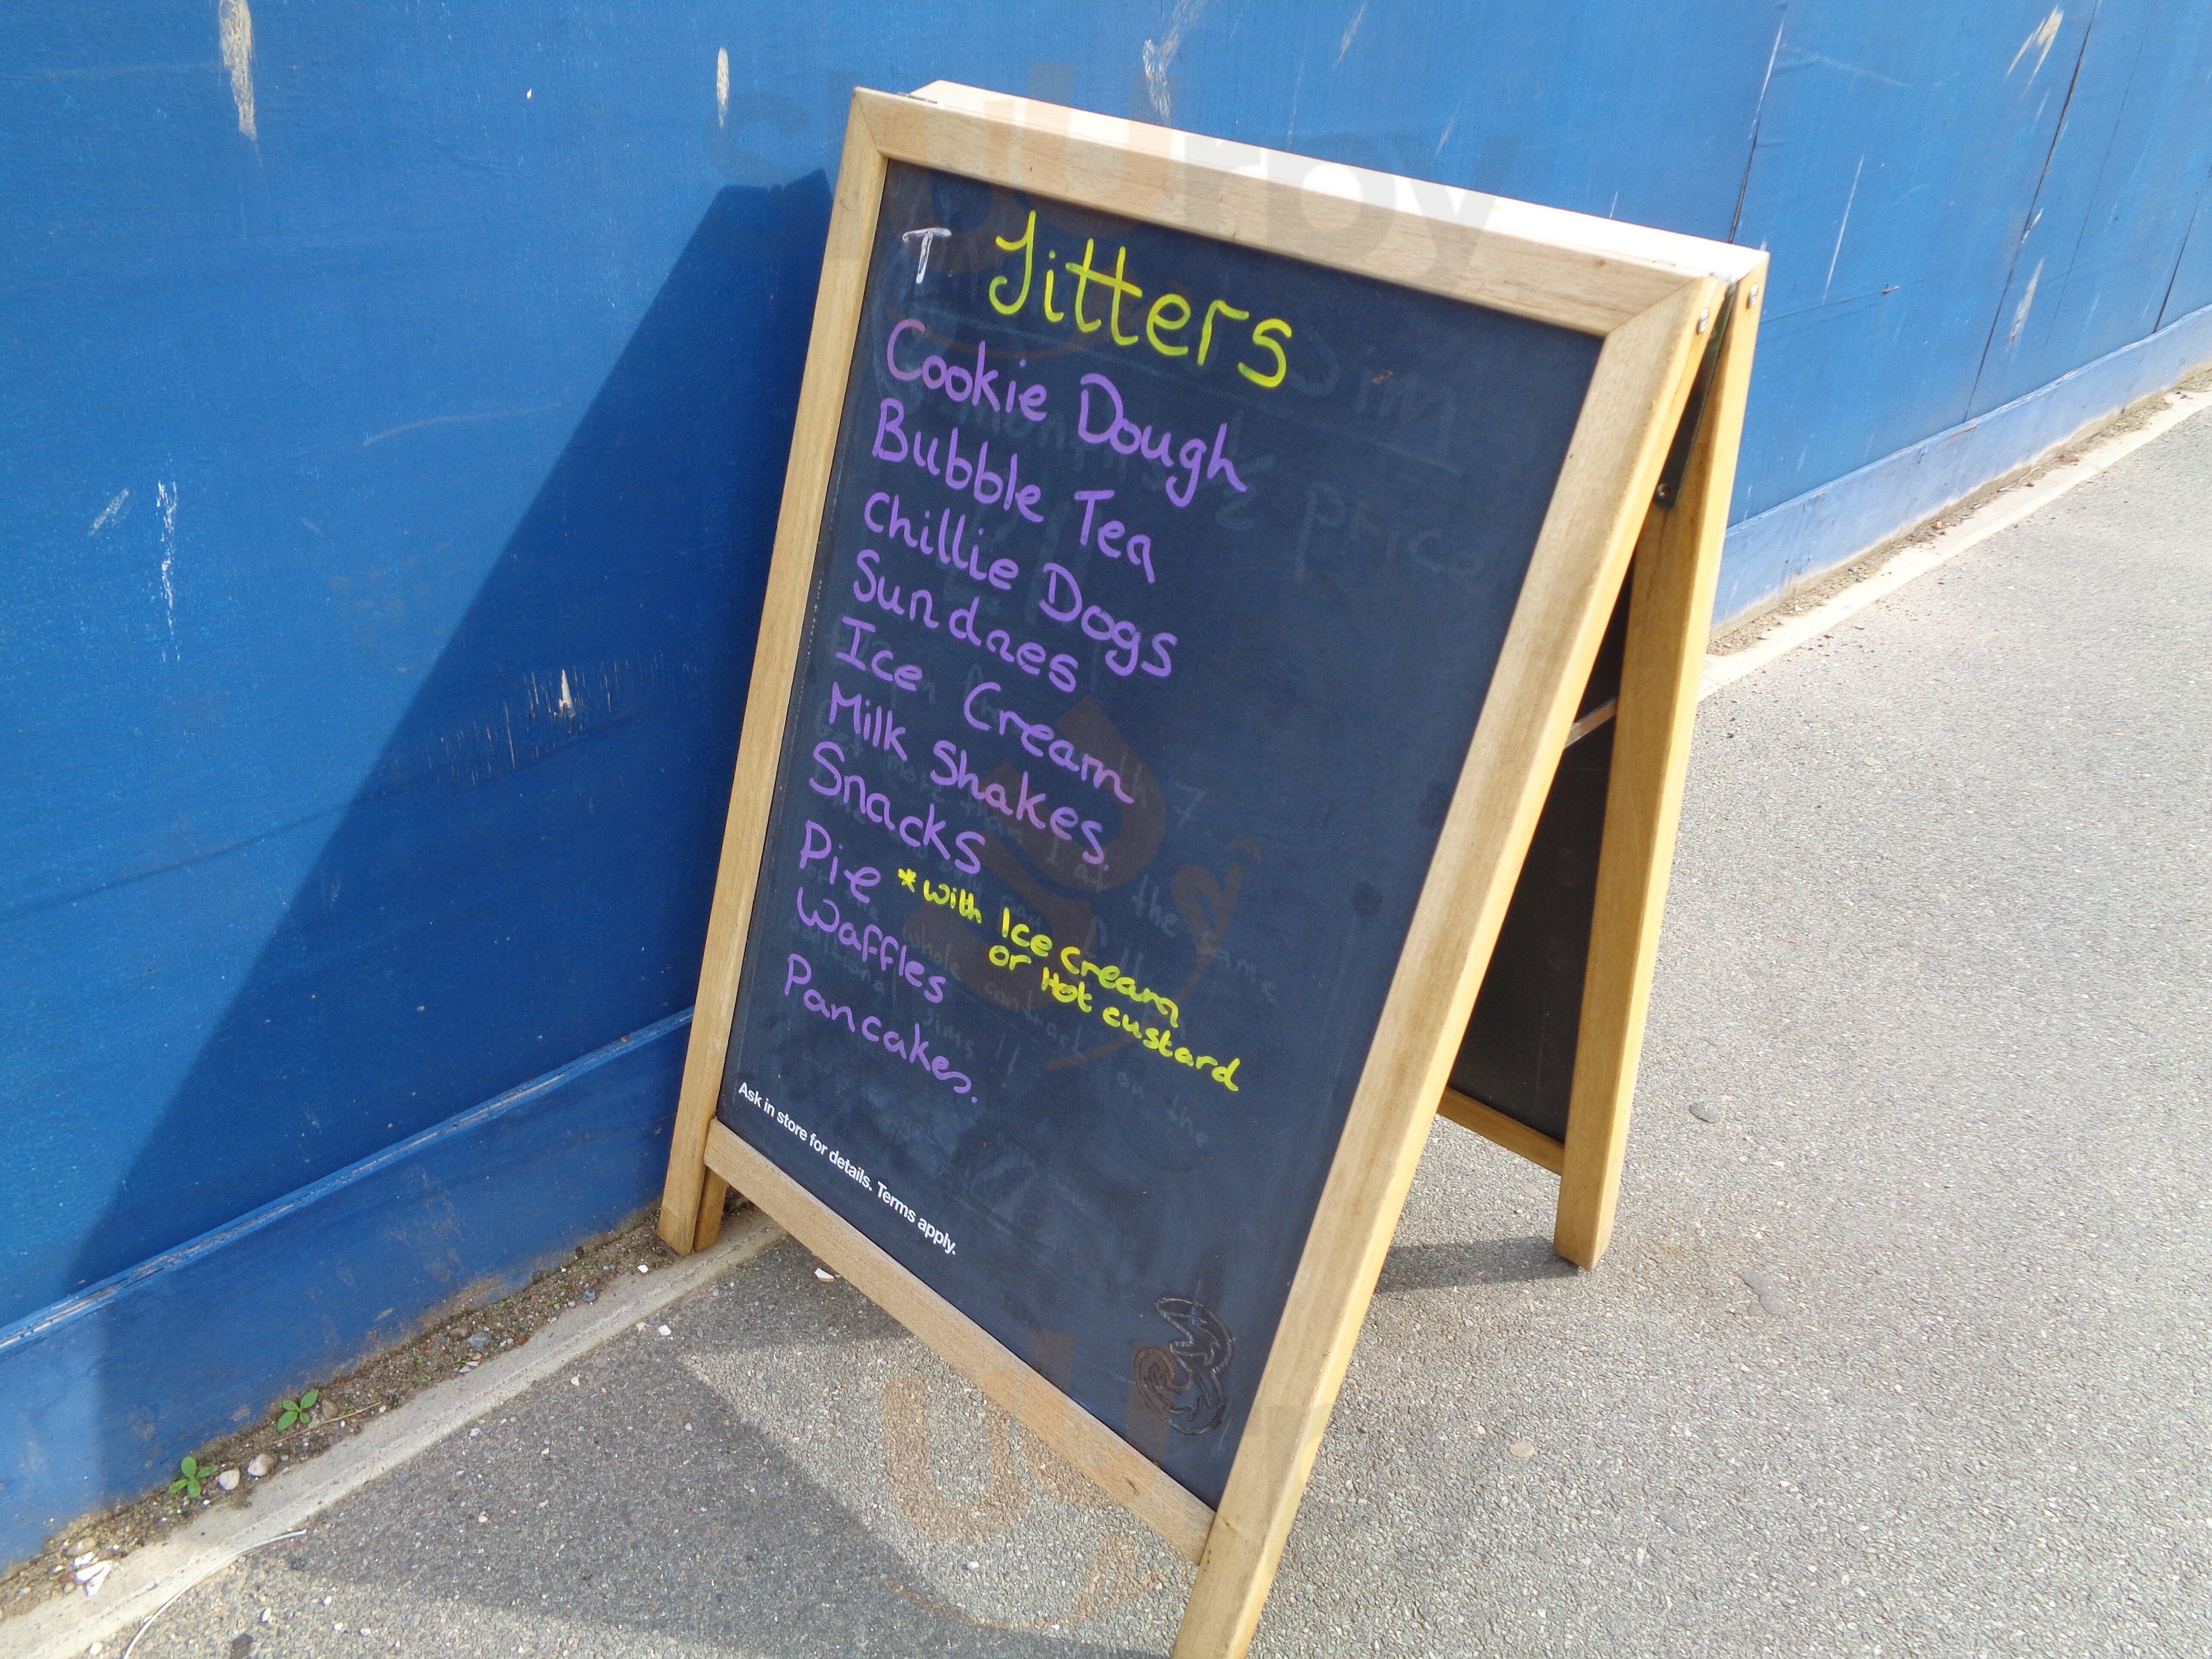 T Jitters
Cookie Dough
Bubble Tea
Chillie Dogs
Sundaes
Ice Cream
Milk Shakes.
Snacks
Pie *with Ice Cream
or Hot custard
Waffles
Pancakes.
Ask in store for details. Terms apply.